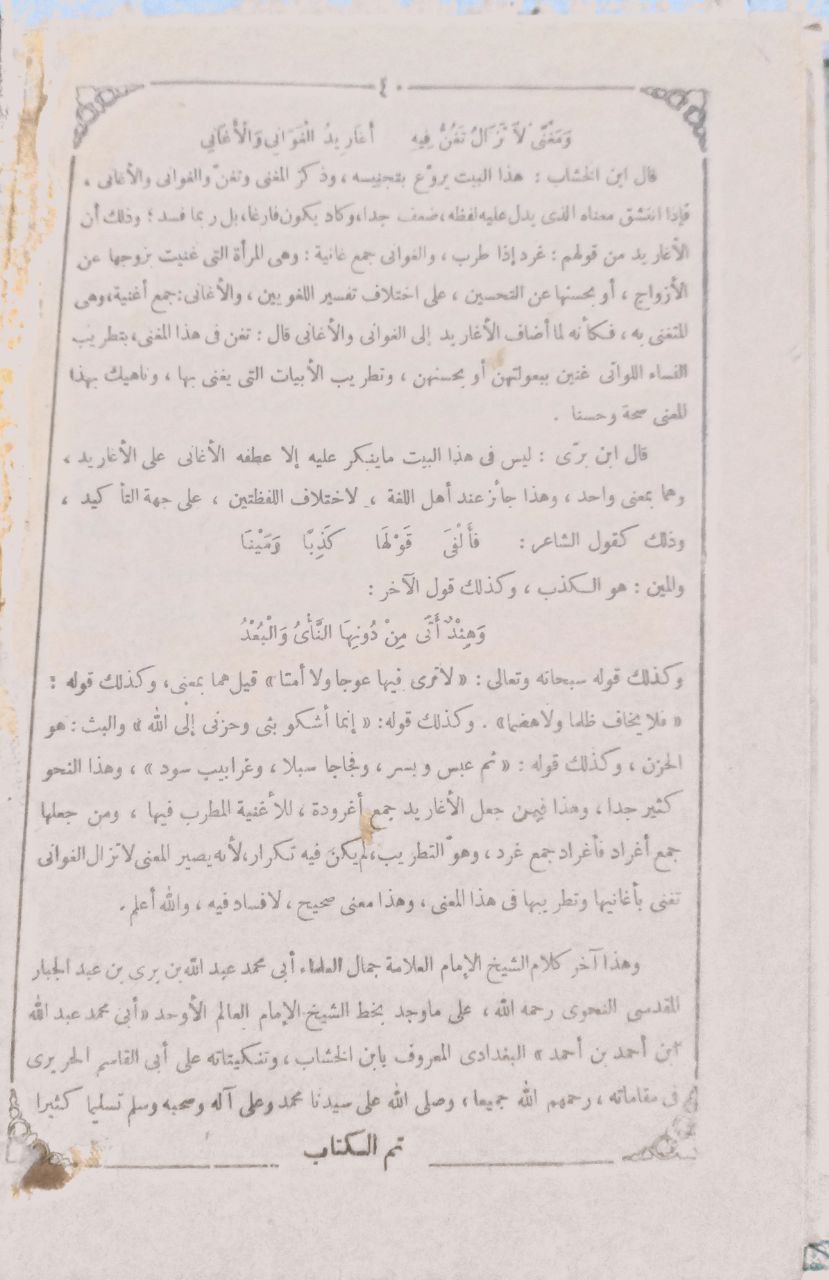 ٤٠
وَمَغْنًى لَا تَزَالُ تَغُنُّ فِيهِ أَغَارِيدُ الْغَوَانِي وَالْأَغَانِي
قال ابن الخشاب : هذا البيت يروّع بتجنيسه ، وذكر المغنى وتغنّ والغوانى والأغانى .
فإذا انتشق معناه الذى يدل عليه لفظه ، ضعف جدا ، وكاد يكون فارغا ، بل ربما فسد ؛ وذلك أن
الأغاريد من قولهم : غرد إذا طرب ، والغوانى جمع غانية : وهى المرأة التى غنيت بزوجها عن
الأزواج ، أو بحسنها عن التحسين ، على اختلاف تفسير اللغويين ، والأغانى : جمع أغنية ، وهى
المتغنى به ، فكأنه لما أضاف الأغاريد إلى الغوانى والأغانى قال : تغن فى هذا المغنى ، بتطريب
النساء اللواتى غنين ببعولتهن أو بحسنهن ، وتطريب الأبيات التى يغنى بها ، وناهيك بهذا
المعنى صحة وحسنا .
قال ابن برّى : ليس فى هذا البيت ماينكر عليه إلا عطفه الأغانى على الأغاريد ،
وهما بمعنى واحد ، وهذا جائز عند أهل اللغة ، لاختلاف اللفظتين ، على جهة التأكيد ،
وذلك كقول الشاعر : فَأَلْفَى قَوْلَهَا كَذِبًا وَمَيْنَا
والمين : هو الكذب ، وكذلك قول الآخر :
وَهِنْدٌ أَتَى مِنْ دُونِهَا النَّأْىُ وَالْبُعْدُ
وكذلك قوله سبحانه وتعالى : « لاترى فيها عوجا ولا أمتا » قيل هما بمعنى ، وكذلك قوله :
« فلا يخاف ظلما ولا هضما » . وكذلك قوله : « إنما أشكو بثى وحزنى إلى الله » والبث : هو
الحزن ، وكذلك قوله : « ثم عبس وبسر ، وفجاجا سبلا ، وغرابيب سود » ، وهذا النحو
كثير جدا ، وهذا فيمن جعل الأغاريد جمع أغرودة ، للأغنية المطرب فيها ، ومن جعلها
جمع أغراد فأغراد جمع غرد ، وهو التطريب ، لم يكن فيه تكرار ، لأنه يصير المعنى لاتزال الغوانى
تغنى بأغانيها وتطريبها فى هذا المغنى ، وهذا معنى صحيح ، لافساد فيه ، والله أعلم .
وهذا آخر كلام الشيخ الإمام العلامة جمال العلماء أبى محمد عبد الله بن برى بن عبد الجبار
المقدسى النحوى رحمه الله ، على ماوجد بخط الشيخ الإمام العالم الأوحد « أبى محمد عبد الله
ابن أحمد بن أحمد » البغدادى المعروف بابن الخشاب ، وتنكيتاته على أبى القاسم الحريرى
فى مقاماته ، رحمهم الله جميعا ، وصلى الله على سيدنا محمد وعلى آله وصحبه وسلم تسليما كثيرا
تم الكتاب